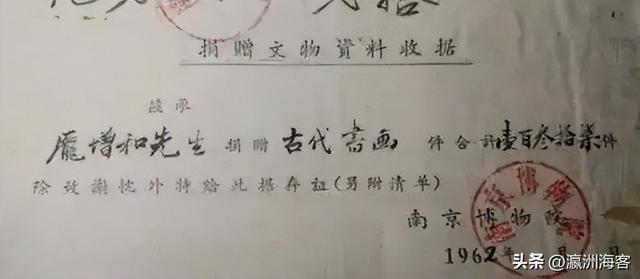 捐贈文物資料收据
茲承
龐增和先生捐贈古代書画件合計壹百叁拾柒件
除致謝忱外特給此据存証(另附清单)
南京博物院
1962年 月 日
南京博物院
头条 @瀛洲海客